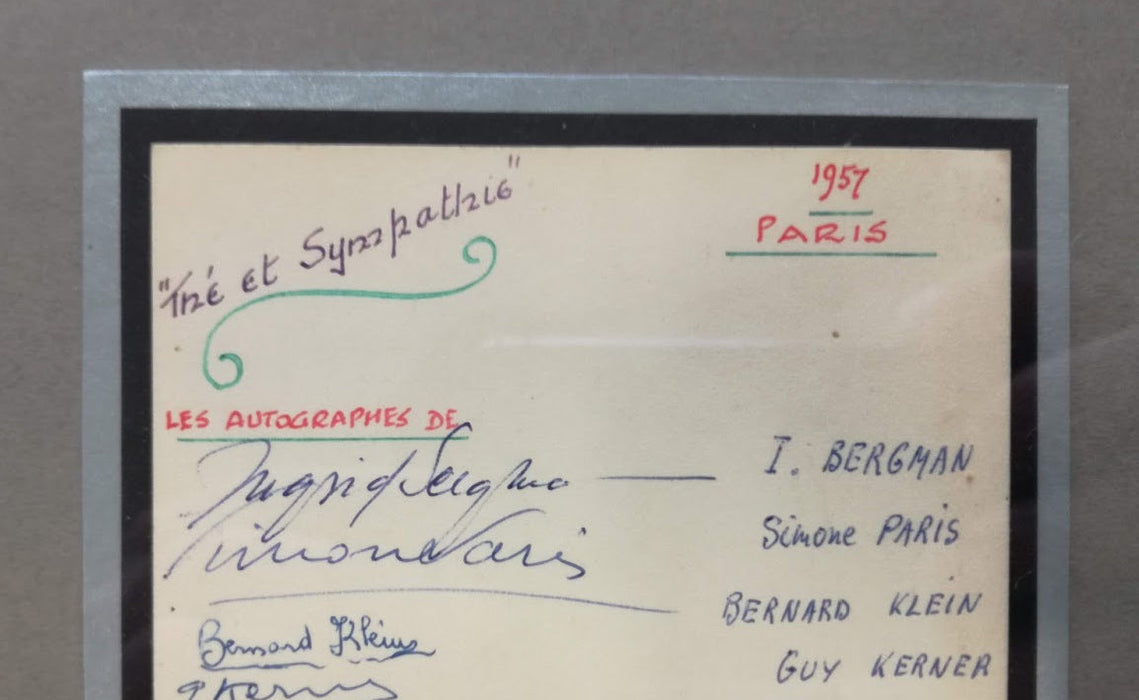 "Thé et Sympathie"
1957
PARIS
LES AUTOGRAPHES DE
Ingrid Bergman — I. BERGMAN
Simone Paris Simone PARIS
Bernard Klein BERNARD KLEIN
G Kerner GUY KERNER